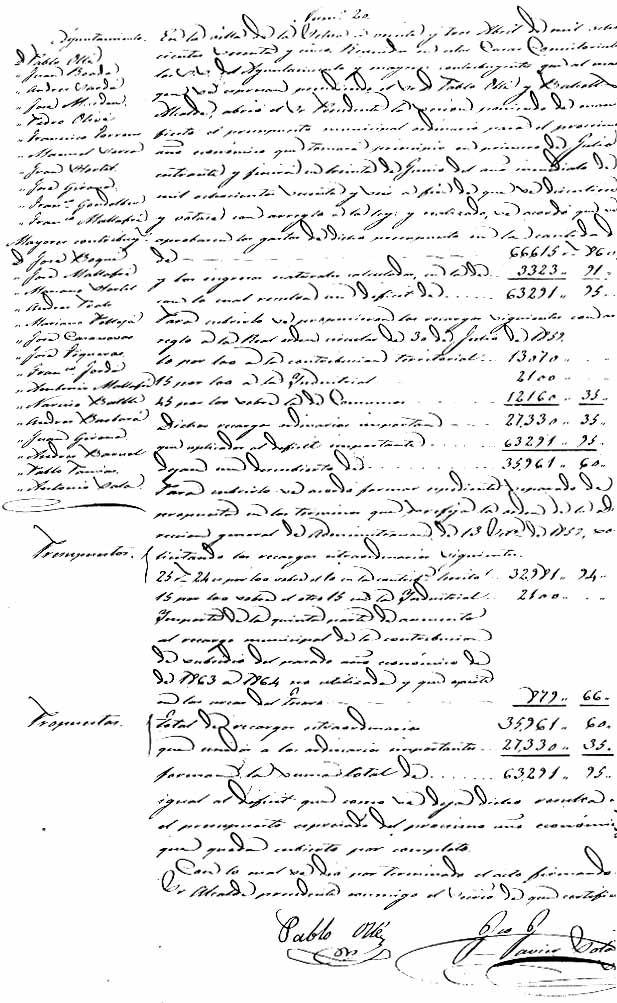 Num.º 20.
Ayuntamiento.
D. Pablo Ollé
" Juan Boada
" Andres Sardá
" José M.
" Pedro Olivé
" Francisco
" Manuel Serra
" Juan Hortet
" José Girona
" Fran.co
" Fran.co Mallafré
Mayores contribuy.
D. José Roqué
" José Mallafré
" Mariano Hortet
" Andres
" Mariano
" José Casanovas
" José Figueras
" Fran.co Jordá
" Mallafré
" Narciso Batlle
" Andres Barberá
" Juan Girona
" Andres
" Pablo
" Antonio Sala
En la villa de la á veinte y tres Abril de mil ocho
cientos sesenta y cinco. Reunidos en estas Casas Consistoriales
los SS. del Ayuntamiento y mayores contribuyentes que al mar
gen se espresan presididos el Sr. D. Pablo Ollé y
Alcalde, abrió el Sr. Presidente la sesion poniendo de mani
fiesto el presupuesto municipal ordinario para el procsimo
año económico que tomará principio en primero de Julio
entrante y finirá en treinta de Junio del año inmediato de
mil ochocientos sesenta y seis á fin de que se discutiera
y votára con arreglo á la ley: y realizado, se acordó que se
aprobaran los gastos de dicho presupuesto en la cantidad
de 66615 " 86 "
y los ingresos naturales calculados, en la de 3323 " 91 "
con lo cual resulta un deficit de 63291 " 95 "
Para cubrirlo se propusieron los recargos siguientes con ar
reglo á la Real orden circular de 30 de Julio de 1859.
10 por 100 á la contribucion territorial 13070 " "
15 por 100 á la Yndustrial 2100 " "
45 por 100 sobre la de Consumos 12160 " 35 "
Dichos recargos ordinarios importan 27,330 " 35 "
que aplicados al deficit importante 63291 " 95 "
dejan un descubierto de 35961 " 60 "
Para cubrirlo se acordó formar espediente separado de
propuesta en los terminos que prefija la orden de la di
reccion general de Administracion de 13 de 1857, so
licitando los recargos estraordinarios siguientes.
Propuestos.
32,981 " 94 "
15 por 100 sobre el otro 15 en la Yndustrial 2100 " "
Ymporte de la quinta parte de aumento
al recargo municipal de la contribucion
de subsidio del pasado año económico
de 1863 á 1864 no utilizada y que existe
en las arcas del 879 " 66 "
Propuestos.
Total de recargos estraordinarios 35,961 " 60 "
que unidos á los ordinarios importantes 27,330 " 35 "
forman la suma total de 63,291 " 95 "
igual al deficit que como se deja dicho resulta en
el presupuesto espresado del procsimo año económico
que queda cubierto por completo.
Con lo cual se dió por terminado el acto firmando el
Sr. Alcalde presidente conmigo el Srio. de que certifico.
Pablo Ollé
Javier Sola